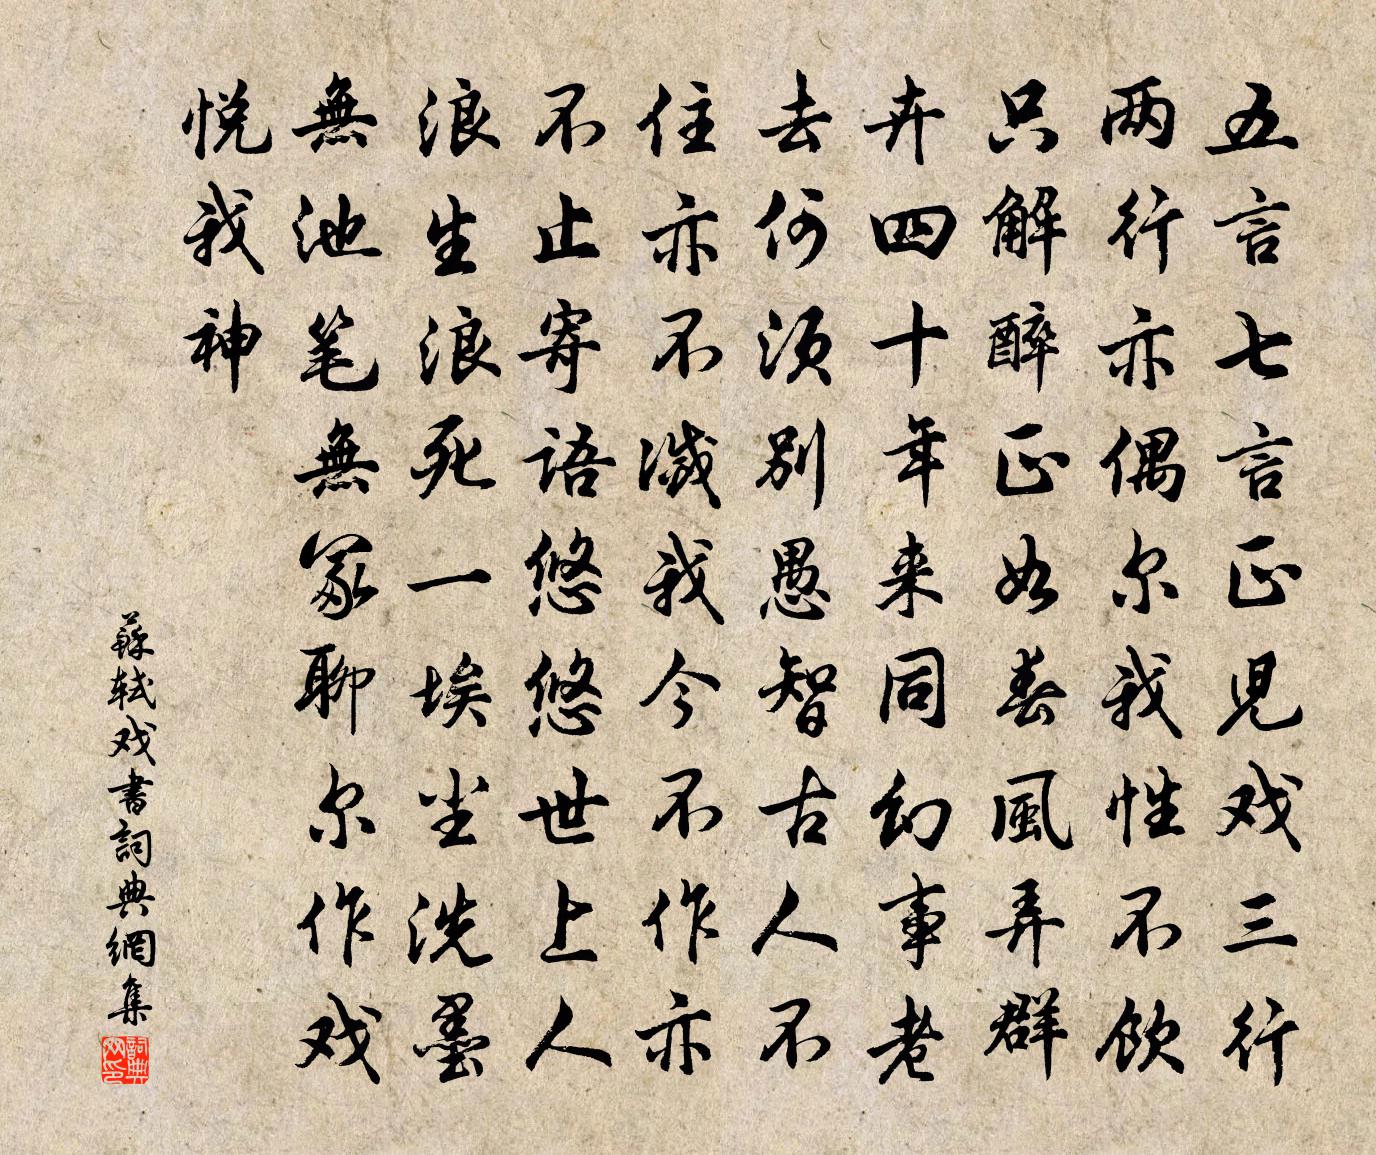 五言七言正見戏三行
两行亦偶尔我性不飲
只解醉正如春風弄群
卉四十年来同幻事老
去何须别愚智古人不
住亦不滅我今不作亦
不止寄語悠悠世上人
浪生浪死一埃尘洗墨
無池笔無冢聊尔作戏
悦我神
蘇軾戏書詞典網集
詞典网印